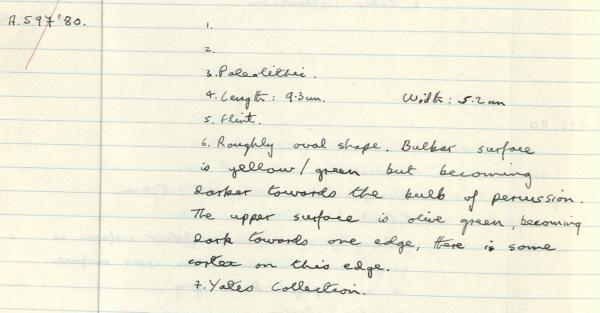 A.597'80.
1.
2.
3. Paleolithic.
4. Length: 9.3cm. Width: 5.2cm
5. Flint.
6. Roughly oval shape. Bulbar surface
is yellow/green but becoming
darker towards the bulb of percussion.
The upper surface is olive green, becoming
dark towards one edge, there is some
cortex on this edge.
7. Yates Collection.